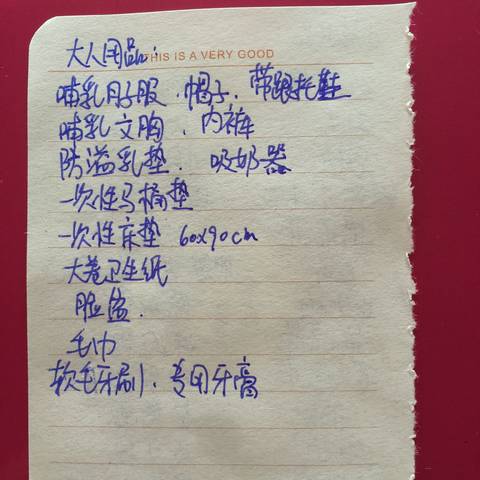 大人用品:
THIS IS A VERY GOOD
哺乳月子服、帽子、带跟拖鞋
哺乳文胸、内裤
防溢乳垫、吸奶器
一次性马桶垫
一次性床垫 60x90cm
大卷卫生纸
脸盆.
毛巾
软毛牙刷、专用牙膏